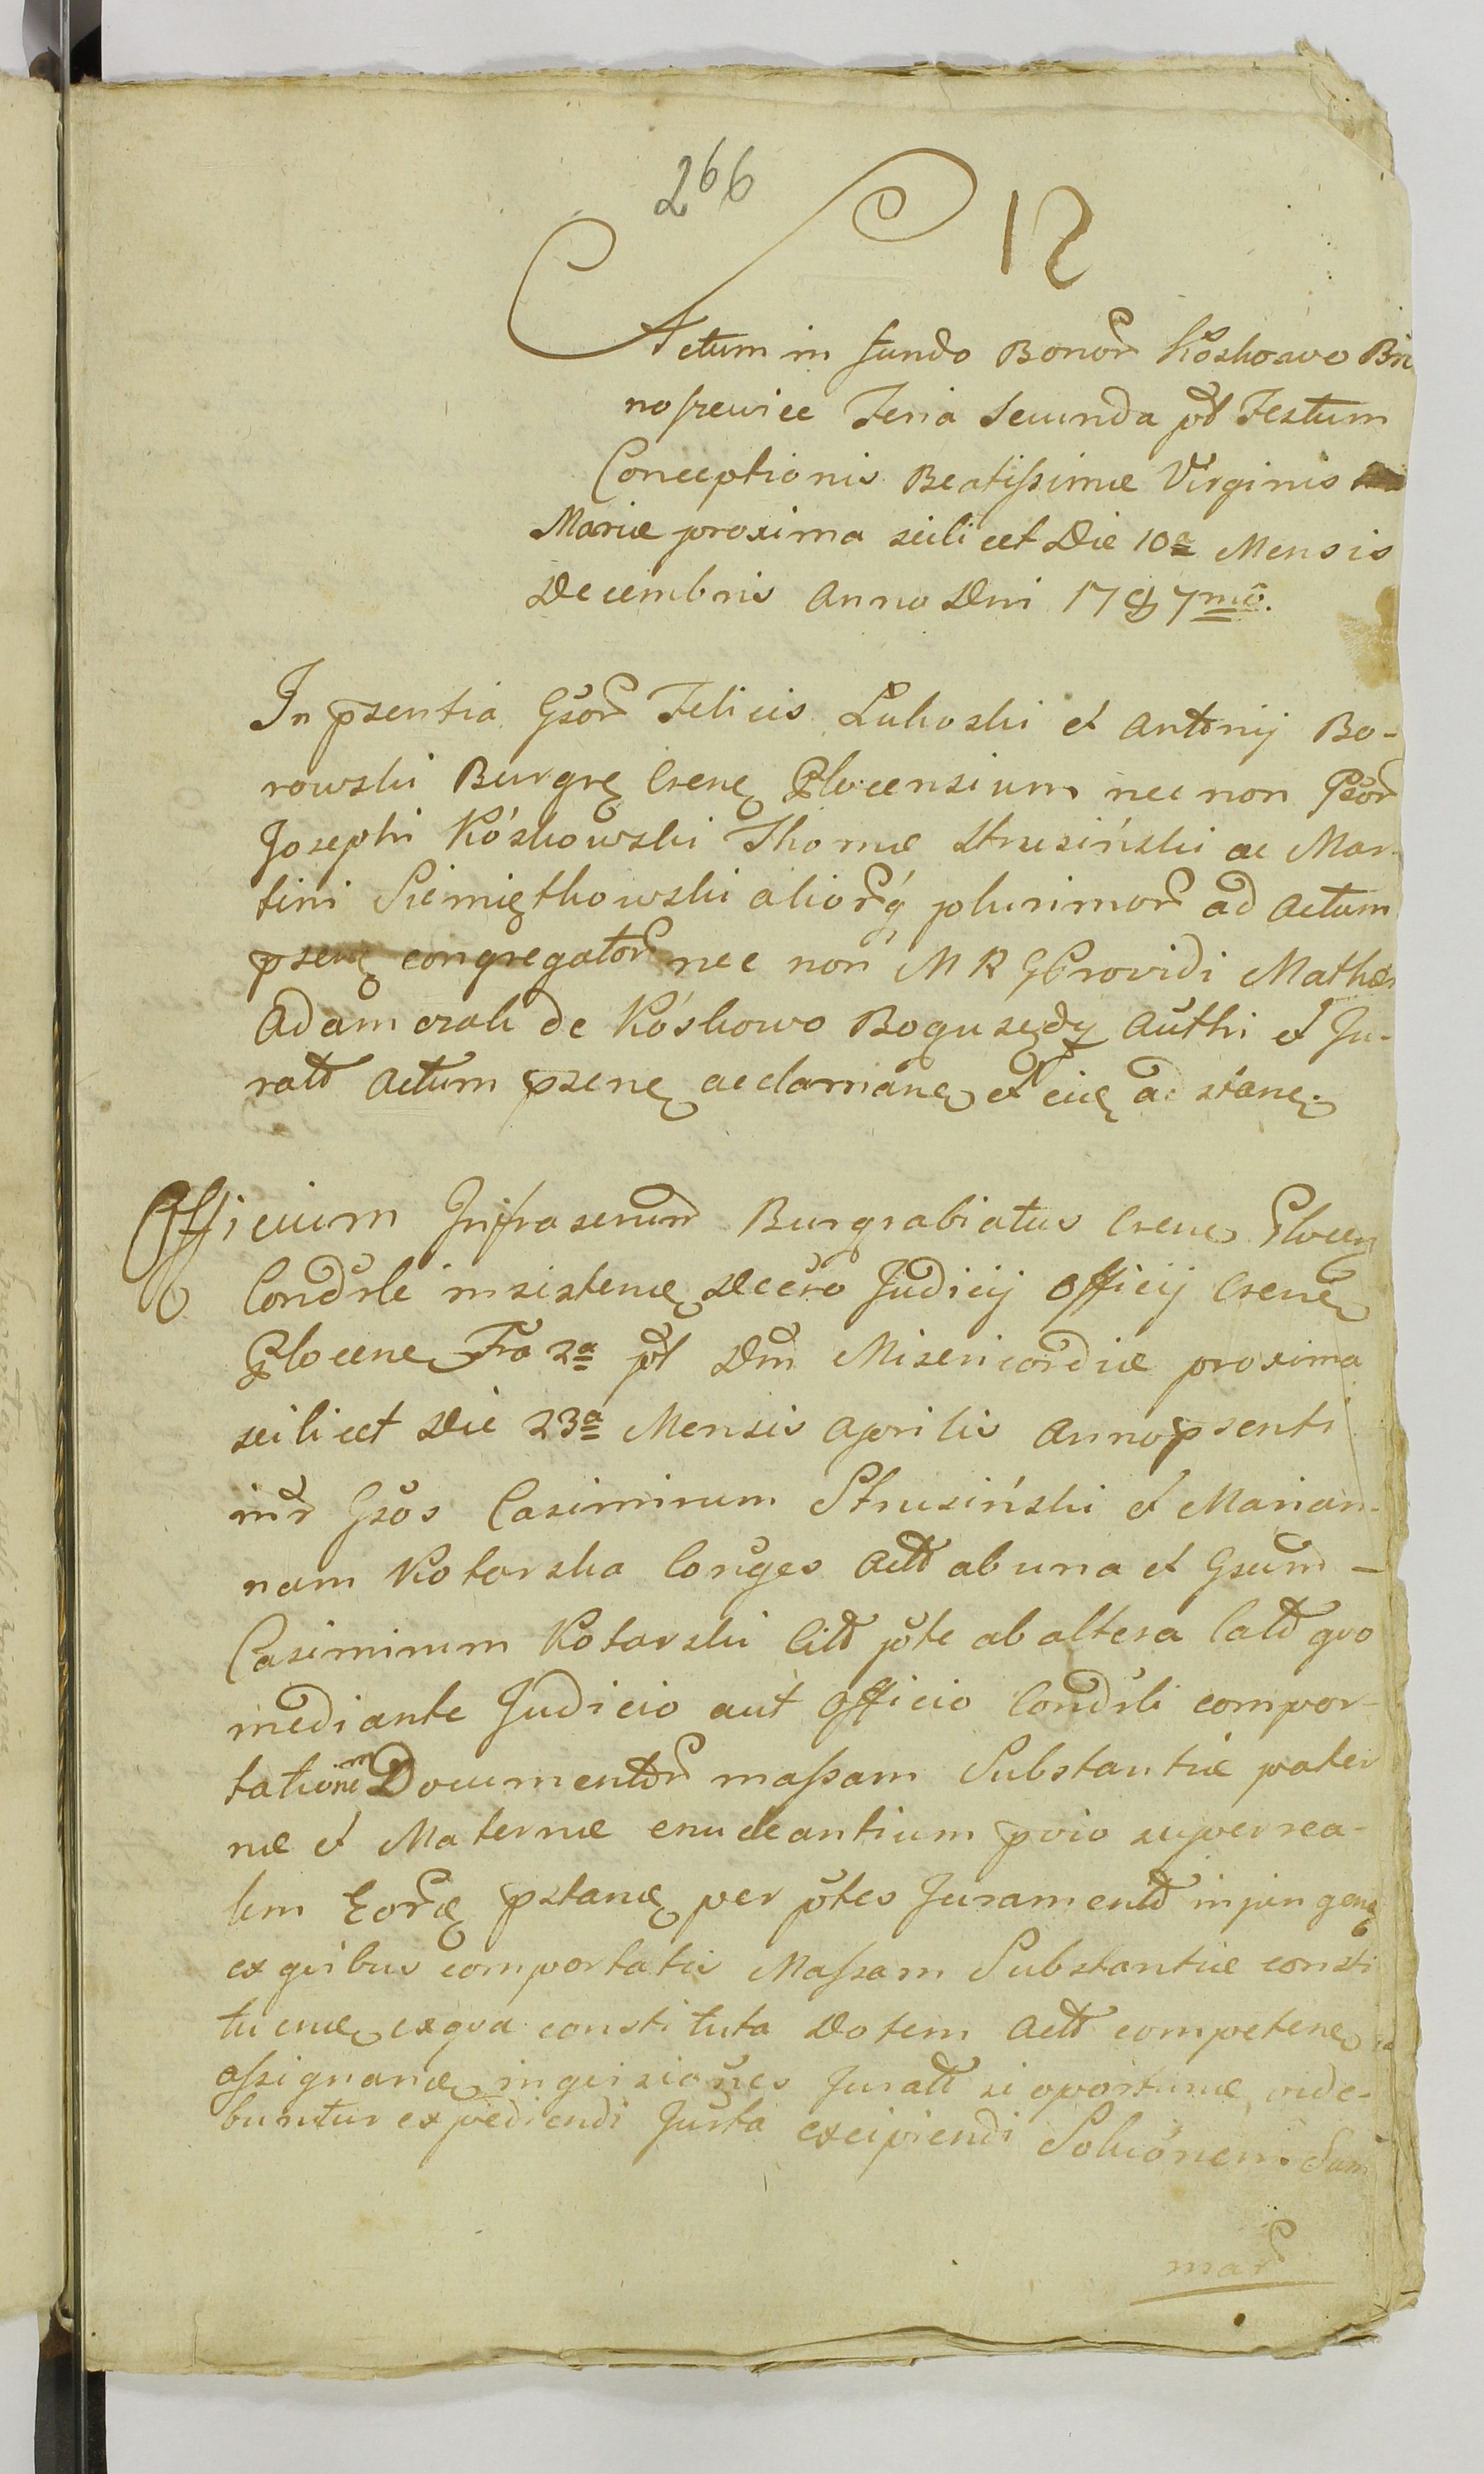 266
12
Actum in fundo Bonor Kośkowo Bro
noszewice Feria Secunda pt Festum
Conceptionis Beatissimæ Virginis
Mariæ proxima scilicet Die 10a Mensis
Decembris Anno Dni 1787mo.
In psentia Gsor Felicis Lukoski et Antonij Bo-
rowski Burgrę Crenę Plocensium nec non Gsor
Josephi Kośkowski Thomæ Strusiński ac Mar-
tini Siemiątkowski aliorq plurimor ad Actum
psenę congregator nec non M R G Providi Mathæi
Adamczak de Kośkowo Boguszędy Authi et Ju-
ratt Actum psenę acclamanę et eię ad stanę.
Officium Infrascrum Burgrabiatus Crenę Plocen
Condrle insistenę Decro Judicij Officij Crenę
Plocenę Fra 2a pt Dm Misericordiæ proxima
scilicet Die 23a Mensis Aprilis Anno psenti
intr Gsos Casimirum Strusiński et Marian-
nam Kotarska Conges Actt ab una et Gsum -
Casimirum Kotarski Citt pte ab altera Latt quo
mediante Judicio aut Officio Condrli compor-
tationem Documentor massam Substantiæ pater
næ et Maternæ enucleantium pvio super rea-
lem Eorę pstanę per ptes Juramentt injungenę
ex quibus comportatis Massam Substantiæ consti
tuenę ex qva constituta Dotem Actt competenę
assignanę inquisiones Juratt si oportunę vide-
buntur expediendi Justa excipiendi Solucionem Sum
mar